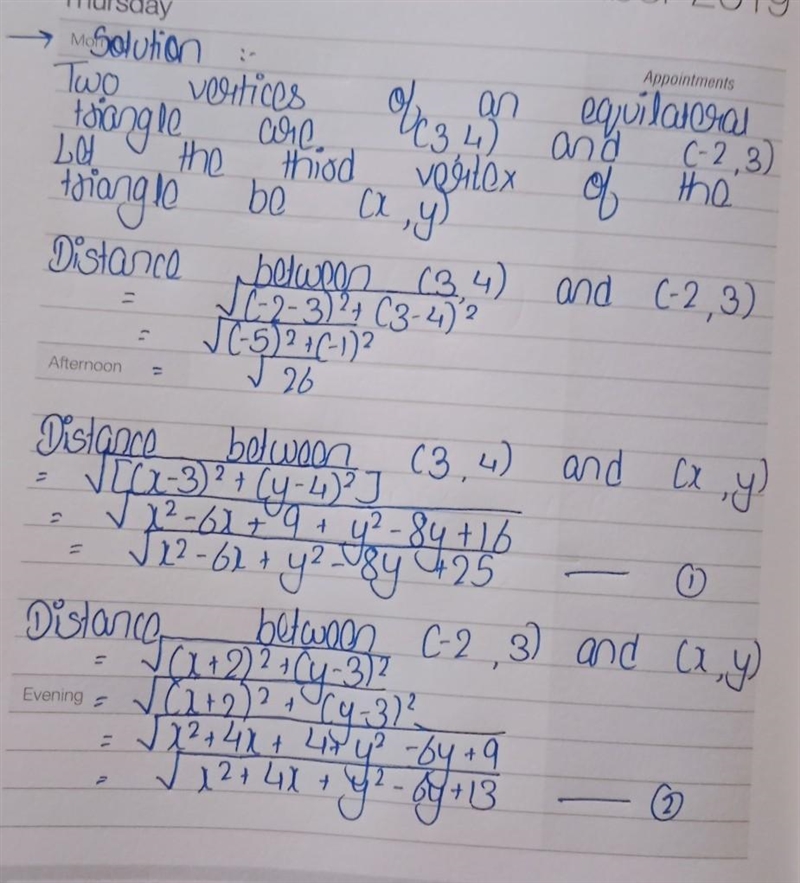 Thursday
2019
→ Solution :-
Appointments
Two vertices of an equilateral
triangle are (3,4) and (-2,3)
Let the third vertex of the
triangle be (x,y)
Distance between (3,4) and (-2,3)
= √(-2-3)²+(3-4)²
= √(-5)²+(-1)²
Afternoon = √26
Distance between (3,4) and (x,y)
= √[(x-3)²+(y-4)²]
= √x²-6x+9+y²-8y+16
= √x²-6x+y²-8y+25 — ①
Distance between (-2,3) and (x,y)
= √(x+2)²+(y-3)²
Evening = √(x+2)²+(y-3)²
= √x²+4x+4+y²-6y+9
= √x²+4x+y²-6y+13 — ②